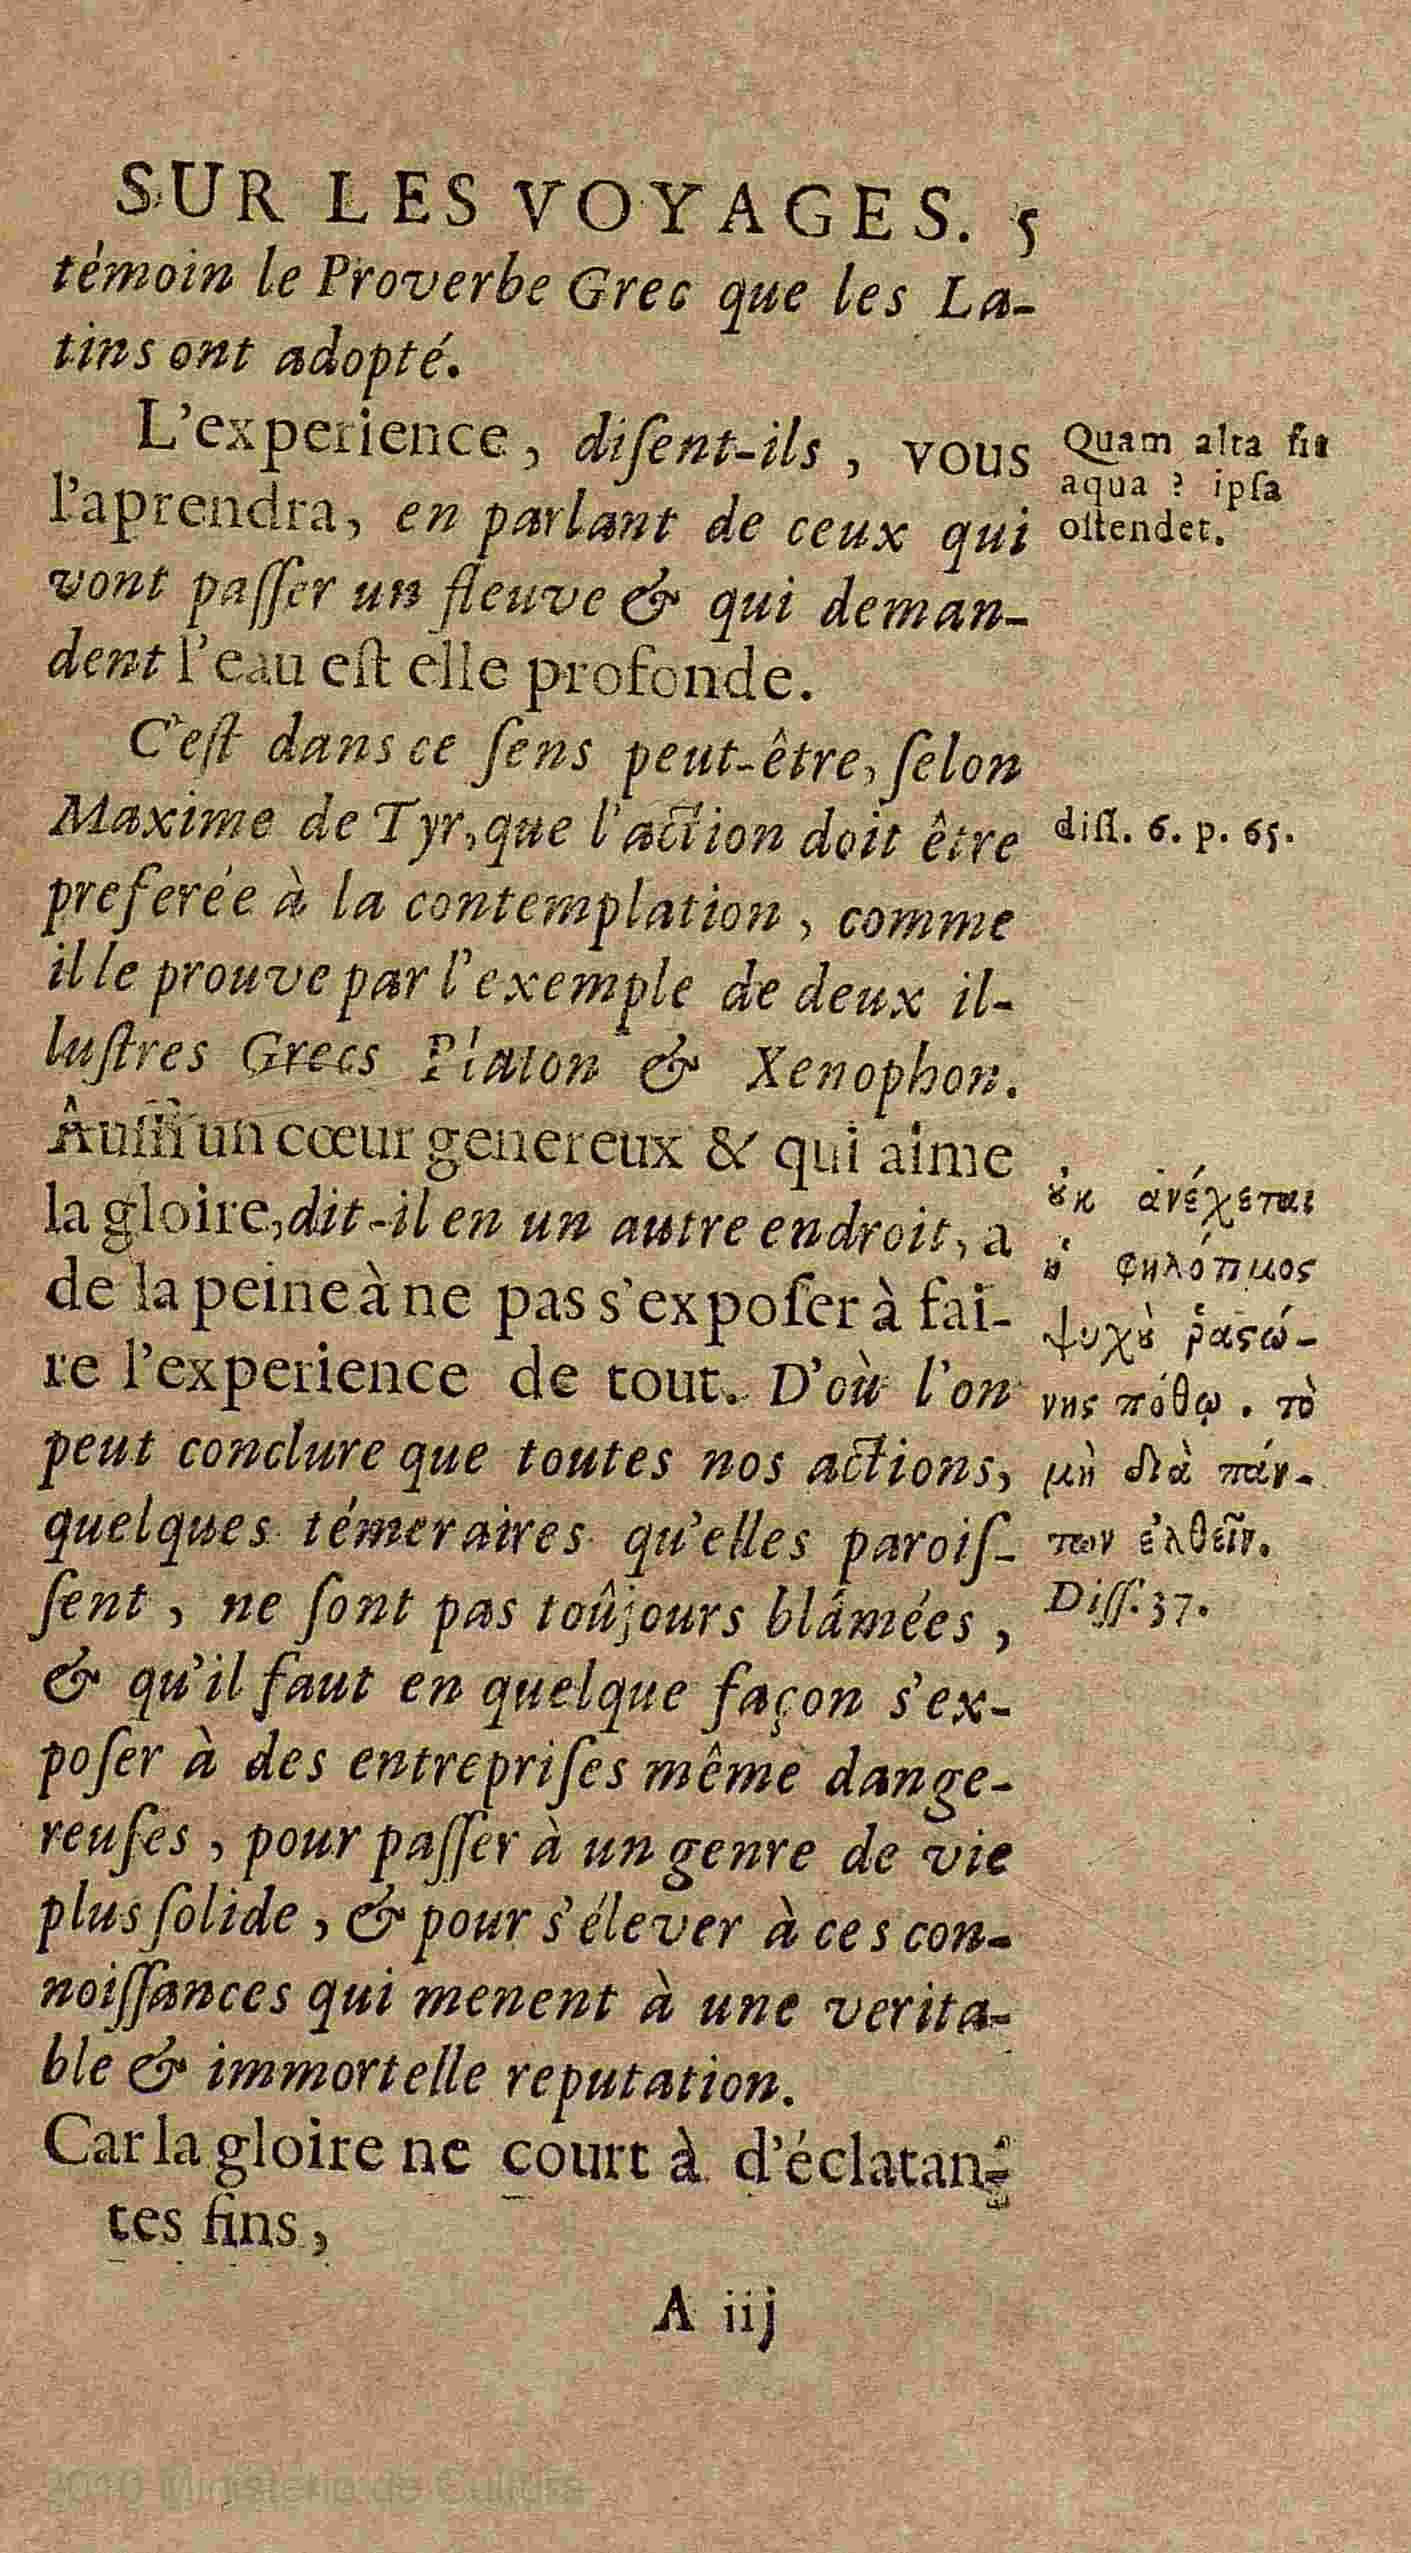 SUR LES VOYAGES. 5
témoin le Proverbe Grec que les La-
tins ont adopté.
L'experience, diſent-ils, vous
l'aprendra, en parlant de ceux qui
vont paſſer un fleuve & qui deman-
dent l'eau eſt elle profonde.
C'eſt dans ce ſens peut-être, ſelon
Maxime de Tyr, que l'action doit être
preferée à la contemplation, comme
il le prouve par l'exemple de deux il-
luſtres Grecs Platon & Xenophon.
Auſſi un cœur genereux & qui aime
la gloire, dit-il en un autre endroit, a
de la peine à ne pas s'expoſer à fai-
re l'experience de tout. D'où l'on
peut conclure que toutes nos actions,
quelques témeraires qu'elles paroiſ-
ſent, ne ſont pas toûjours blâmées,
& qu'il faut en quelque façon s'ex-
poſer à des entrepriſes même dange-
reuſes, pour paſſer à un genre de vie
plus ſolide, & pour s'élever à ces con-
noiſſances qui menent à une verita-
ble & immortelle reputation.
Car la gloire ne court à d'éclatan-
tes fins,
A iij
Quam alta ſit
aqua ? ipſa
oſtendet.
diſſ. 6. p. 65.
ȣκ ἀνέχεται
ἡ φηλότιμος
ψυχὴ ῥαςώ-
νης πόθῳ. τὸ
μὴ διὰ πάν-
των ἐλθεῖν.
Diſſ. 37.
2010 Ministerio de Cultura